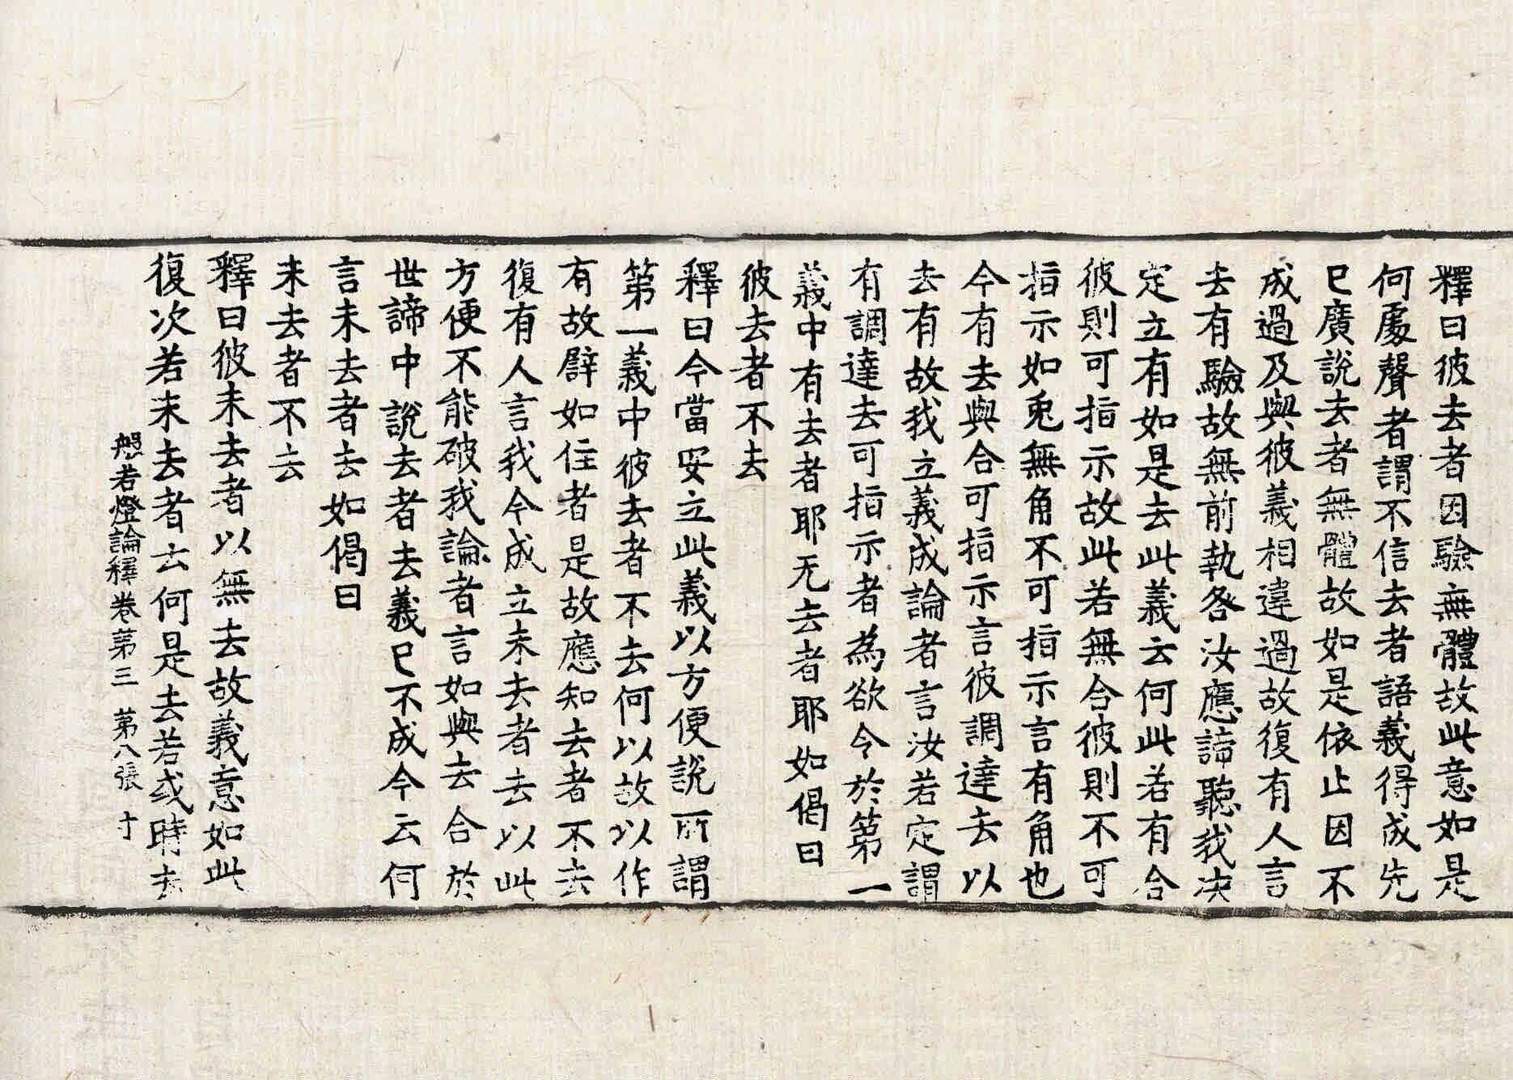 釋曰彼去者因驗無體故此意如是
何處聲者謂不信去者語義得成先
已廣說去者無體故如是依止因不
成過及與彼義相違過故復有人言
去有驗故無前執咎汝應諦聽我決
定立有如是去此義云何此若有合
彼則可指示故此若無合彼則不可
指示如兎無角不可指示言有角也
今有去與合可指示言彼調達去以
去有故我立義成論者言汝若定謂
有調達去可指示者為欲令於第一
義中有去者耶无去者耶如偈曰
彼去者不去
釋曰今當安立此義以方便說所謂
第一義中彼去者不去何以故以作
有故譬如住者是故應知去者不去
復有人言我今成立未去者去以此
方便不能破我論者言如與去合於
世諦中說去者去義已不成今云何
言未去者去如偈曰
未去者不去
釋曰彼未去者以無去故義意如此
復次若未去者云何是去若或時去
般若燈論釋卷第三 第八張 寸